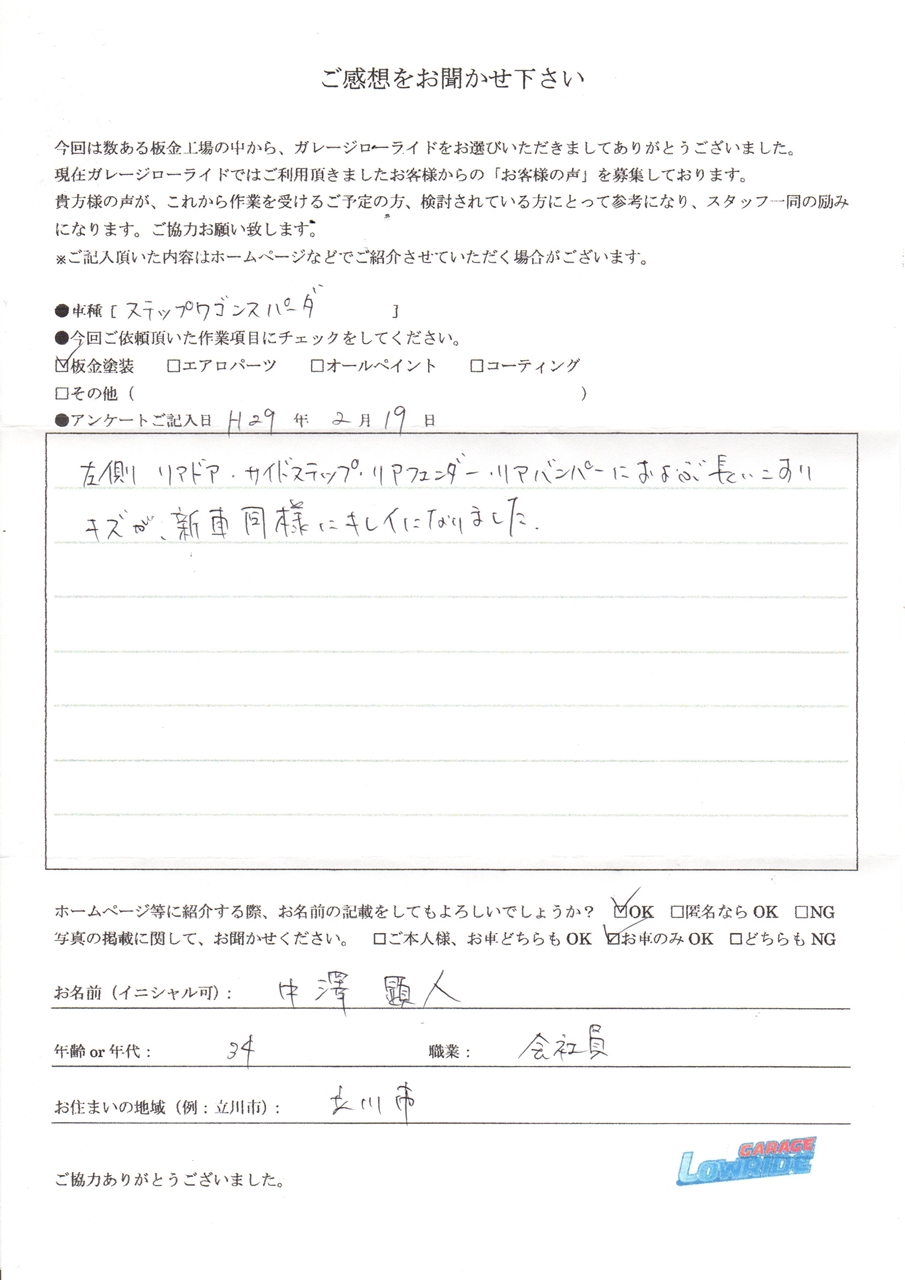 ご感想をお聞かせ下さい
今回は数ある板金工場の中から、ガレージローライドをお選びいただきましてありがとうございました。
現在ガレージローライドではご利用頂きましたお客様からの「お客様の声」を募集しております。
貴方様の声が、これから作業を受けるご予定の方、検討されている方にとって参考になり、スタッフ一同の励み
になります。ご協力お願い致します。
※ご記入頂いた内容はホームページなどでご紹介させていただく場合がございます。
●車種［ ステップワゴンスパーダ ］
●今回ご依頼頂いた作業項目にチェックをしてください。
☑板金塗装 □エアロパーツ □オールペイント □コーティング
□その他（ ）
●アンケートご記入日 H29 年 2 月 19 日
左側 リアドア・サイドステップ・リアフェンダー・リアバンパーにおよぶ長いこすり
キズが、新車同様にキレイになりました。
ホームページ等に紹介する際、お名前の記載をしてもよろしいでしょうか？ ☑OK □匿名なら OK □NG
写真の掲載に関して、お聞かせください。 □ご本人様、お車どちらも OK ☑お車のみ OK □どちらも NG
お名前（イニシャル可）： 中澤 顕人
年齢 or 年代： 34 職業： 会社員
お住まいの地域（例：立川市）： 立川市
ご協力ありがとうございました。
GARAGE
LOWRIDE